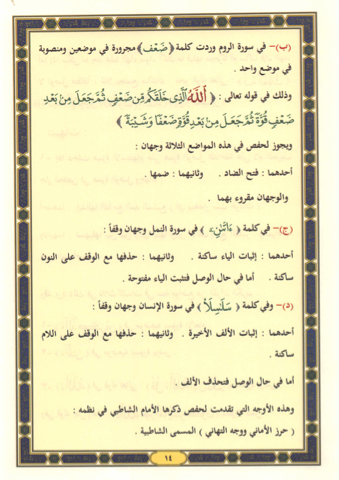 (ب)- في سورة الروم وردت كلمة ﴿ضَعْفٍ﴾ مجرورة في موضعين ومنصوبة
في موضع واحد .
وذلك في قوله تعالى : ﴿ ٱللَّهُ ٱلَّذِى خَلَقَكُم مِّن ضَعْفٍ ثُمَّ جَعَلَ مِنۢ بَعْدِ
ضَعْفٍ قُوَّةً ثُمَّ جَعَلَ مِنۢ بَعْدِ قُوَّةٍ ضَعْفًا وَشَيْبَةً ﴾
ويجوز لحفص في هذه المواضع الثلاثة وجهان :
أحدهما : فتح الضاد . وثانيهما : ضمها .
والوجهان مقروء بهما .
(ج)- في كلمة ﴿ ءَاتَىٰنِۦَ ﴾ في سورة النمل وجهان وقفاً :
أحدهما : إثبات الياء ساكنة . وثانيهما : حذفها مع الوقف على النون
ساكنة . أما في حال الوصل فتثبت الياء مفتوحة .
(د)- وفي كلمة ﴿ سَلَٰسِلَا۟ ﴾ في سورة الإنسان وجهان وقفاً :
أحدهما : إثبات الألف الأخيرة . وثانيهما : حذفها مع الوقف على اللام
ساكنة .
أما في حال الوصل فتحذف الألف .
وهذه الأوجه التي تقدمت لحفص ذكرها الأمام الشاطبي في نظمه :
( حرز الأماني ووجه التهاني ) المسمى الشاطبية .
١٤